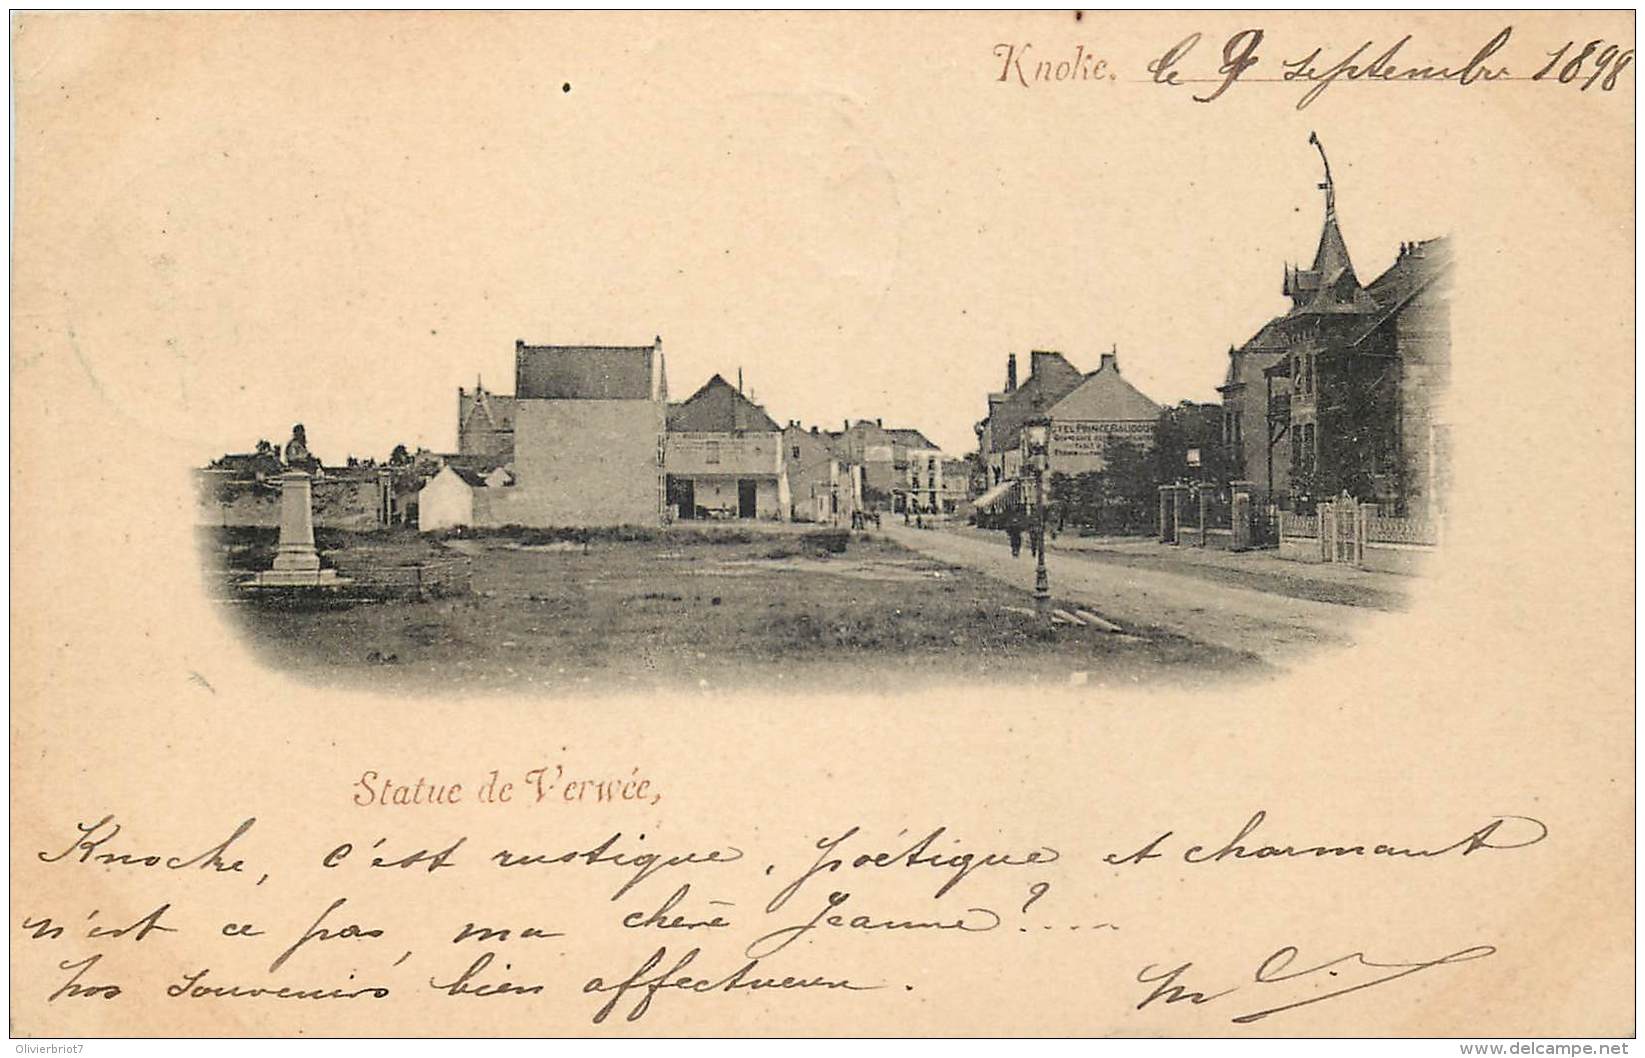 Knoke. le 9 septembre 1898
TEL PRINCE BAUDOUIN
Statue de Verwée,
Knocke, c'est rustique, poétique et charmant
n'est ce pas, ma chère Jeanne ?....
nos souvenirs bien affectueux.
Olivierbriot7
www.delcampe.net